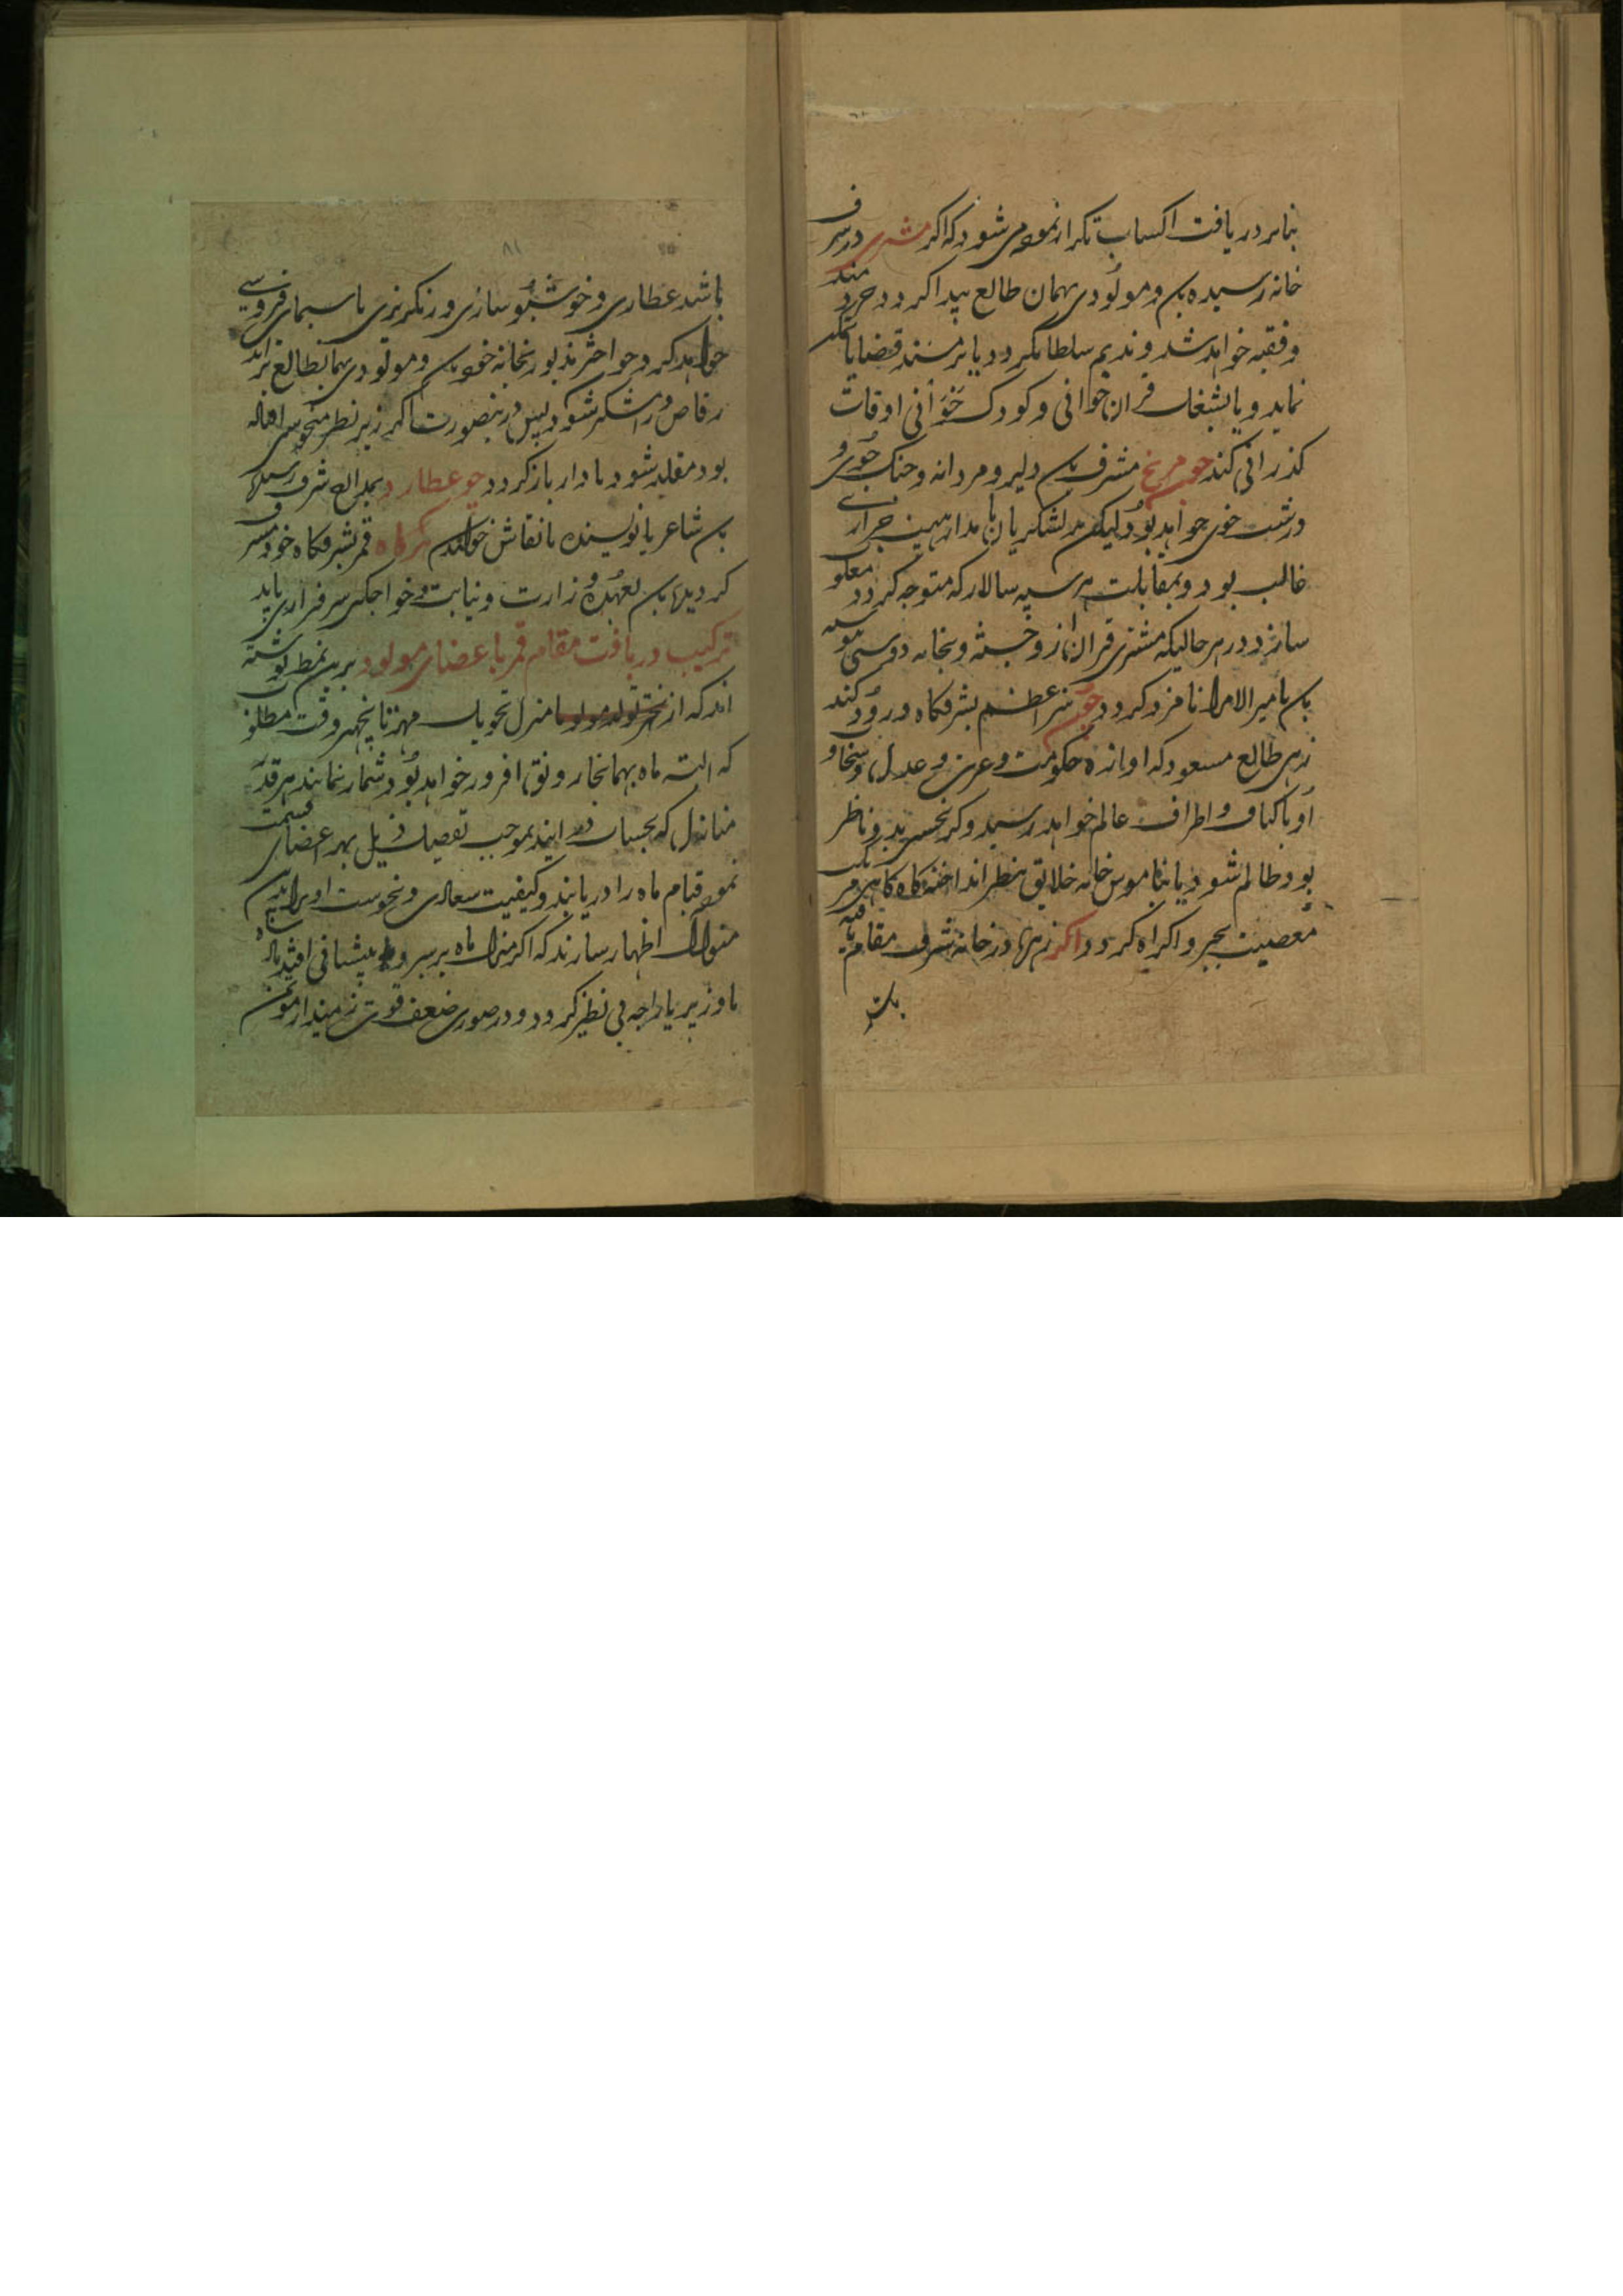 بنابر دریافت اکساب تکرار نموده می شود که اکر مشتری در شرف
خانه رسیده باشد و مولودی بهمان طالع پیدا کردد خردمند
و فقیه خواهد شد و ندیم سلطان کردد یا بر مسند قضایا
نماید و یا بشغل قران خوانی و کودک خوانی اوقات
کذرانی کند چو مریخ مشرف دلیر و مردانه و جنک جوی و
درشت خوی خواهد بود لیکن بر لشکریان
غالب بود و بمقابلت هر سپه سالار که متوجه کردد مغلوب
سازد در هر حالیکه مشتری قران از و بخانه دوستی
بامیر الامرا نامزد کردد چون نیر اعظم بشرفکاه ورود کند
زهی طالع مسعود که اوازه حکومت و عزت و عدل و سخاو
او باکناف و اطراف عالم خواهد رسید و کر نحس برو ناظر
بود ظالم شود یا بناموس خانه خلایق نظر انداخته کاه کاهی مر
معصیت بجبر و اکراه کردد اکر زهره در خانه شرف مقام
باشد
۸۱
باشد عطاری و خوشبو سازی و رنکریزی یا سیمای فروشی
خواهد کرد چو اختر مذبور بخانه خود و مولودی بهمان طالع زاید
رقاص و رامشکر شود لیس درینصورت اکر زیر نظر منحوسی
بود مقلد شود یا دار باز کردد چو عطارد بمدارج شرف رسیده
شاعر یا نویسنده یا نقاش خوانند هرکاه قمر بشرفکاه خود مشرف
کردیده بعهده وزارت و نیابت و خواجکی سرفرازی یابد
ترکیب دریافت مقام قمر با عضای مولود برین نمط نوشته
اند که از منزل تحویل مهر تا پنجهر وقت مطلوب
که البته ماه بهمانجا رونق افروز خواهد بود شمار نمایند هر قدر
منازل که بحساب در ایند بموجب تفصیل ذیل بهر اعضای قسمت
نموده قیام ماه را دریابند و کیفیت سعادی و نحوست او
منوال اظهار سازند که اکر منزل ماه بر سر و پیشانی افتد
یا وزیر یا راجه بی نظیر کردد و در صوری ضعف قوت زمیندار